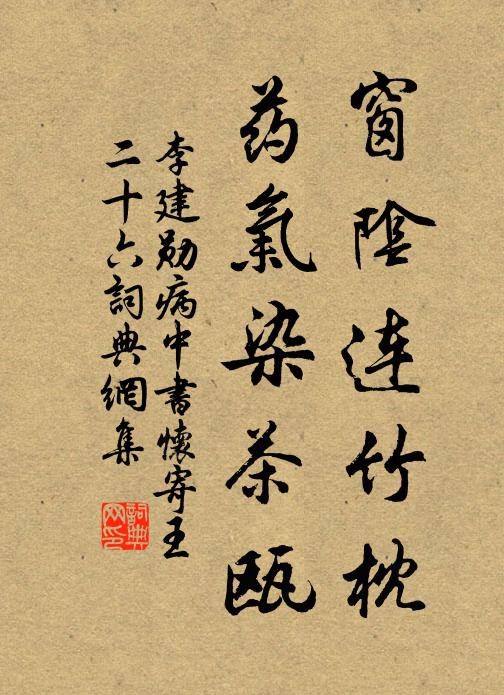 窗陰連竹枕
药氣染茶瓯
李建勛病中書懷寄王
二十六詞典網集
詞典
网印